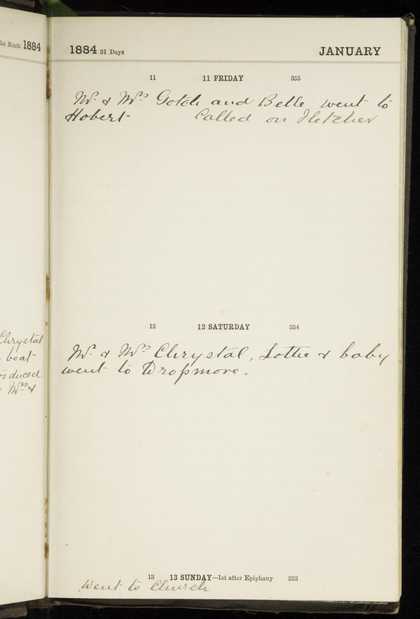 the Book 1884
1884 31 Days JANUARY
11 11 FRIDAY 355
Mr. & Mrs Gotch and Belle went to
Hobert Called on Fletcher
12 12 SATURDAY 354
Chrystal
boat
Mr. & Mrs Chrystal, Lottie & baby
went to Dropmore.
Mrs &
13 13 SUNDAY—1st after Epiphany 353
Went to Church